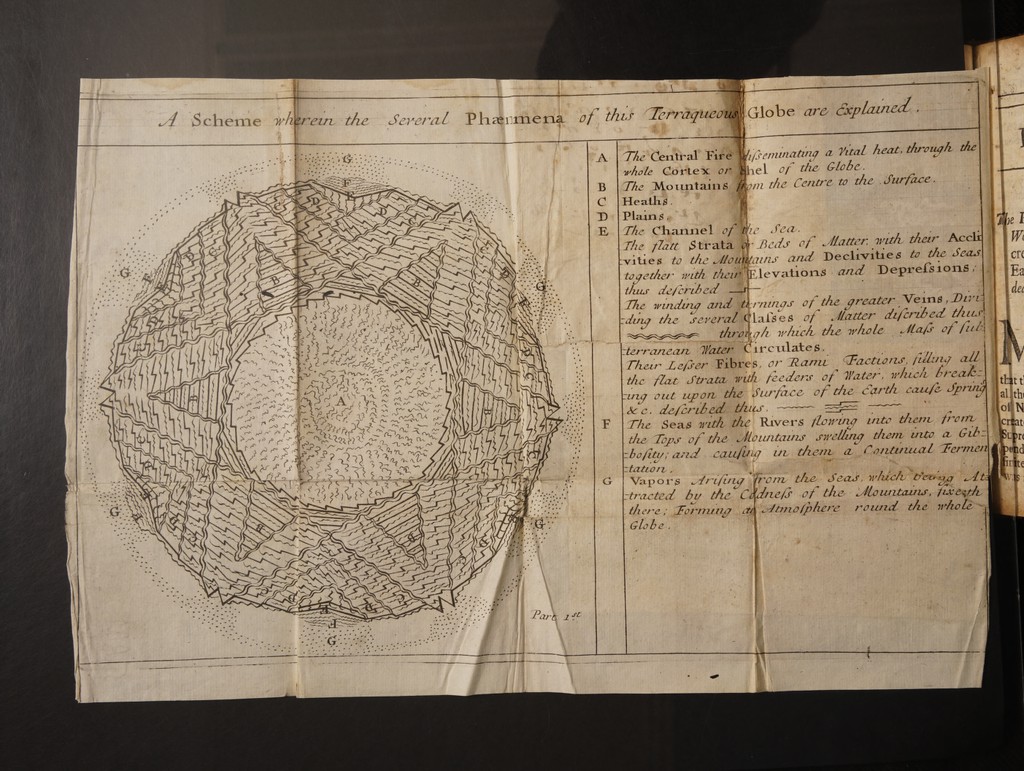 A Scheme wherein the Several Phænmena of this Terraqueous Globe are Explained.
A The Central Fire diſseminating a Vital heat, through the
whole Cortex or Shel of the Globe.
B The Mountains from the Centre to the Surface.
C Heaths.
D Plains
E The Channel of the Sea.
The flatt Strata or Beds of Matter, with their Accli
vities to the Mountains and Declivities to the Seas
together with their Elevations and Depreſsions:
thus deſcribed
The winding and turnings of the greater Veins, Divi
ding the several Claſses of Matter diſcribed thus
through which the whole Maſs of ſub
terranean Water Circulates.
Their Leſser Fibres, or Rami Factions, filling all
the flat Strata with feeders of Water, which break
ing out upon the Surface of the Earth cauſe Spring
& c. deſcribed thus.
F The Seas with the Rivers flowing into them from
the Tops of the Mountains swelling them into a Gib
boſity; and cauſing in them a Continual Fermen
tation.
G Vapors Ariſing from the Seas, which being At
tracted by the of the Mountains, fixeth
there; Forming an Atmoſphere round the whole
Globe.
G
F
G
G
B
B
A
B
B
B
B
G
G
F
G
Part 1st
The
that